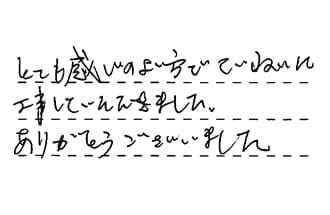 とても感じのよい方でていねいに
工事していただきました。
ありがとうございました